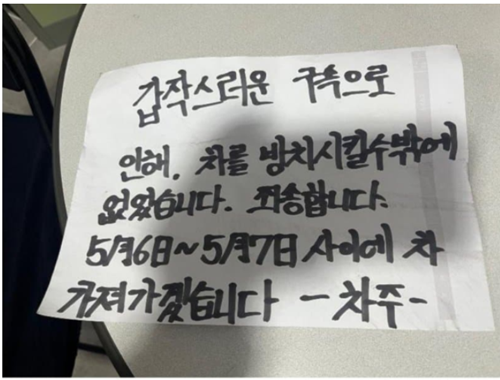 갑작스러운 구속으로
인해, 차를 방치시킬수밖에
없었습니다. 죄송합니다.
5月6日~5月7日 사이에 차
가져가겠습니다 -차주-